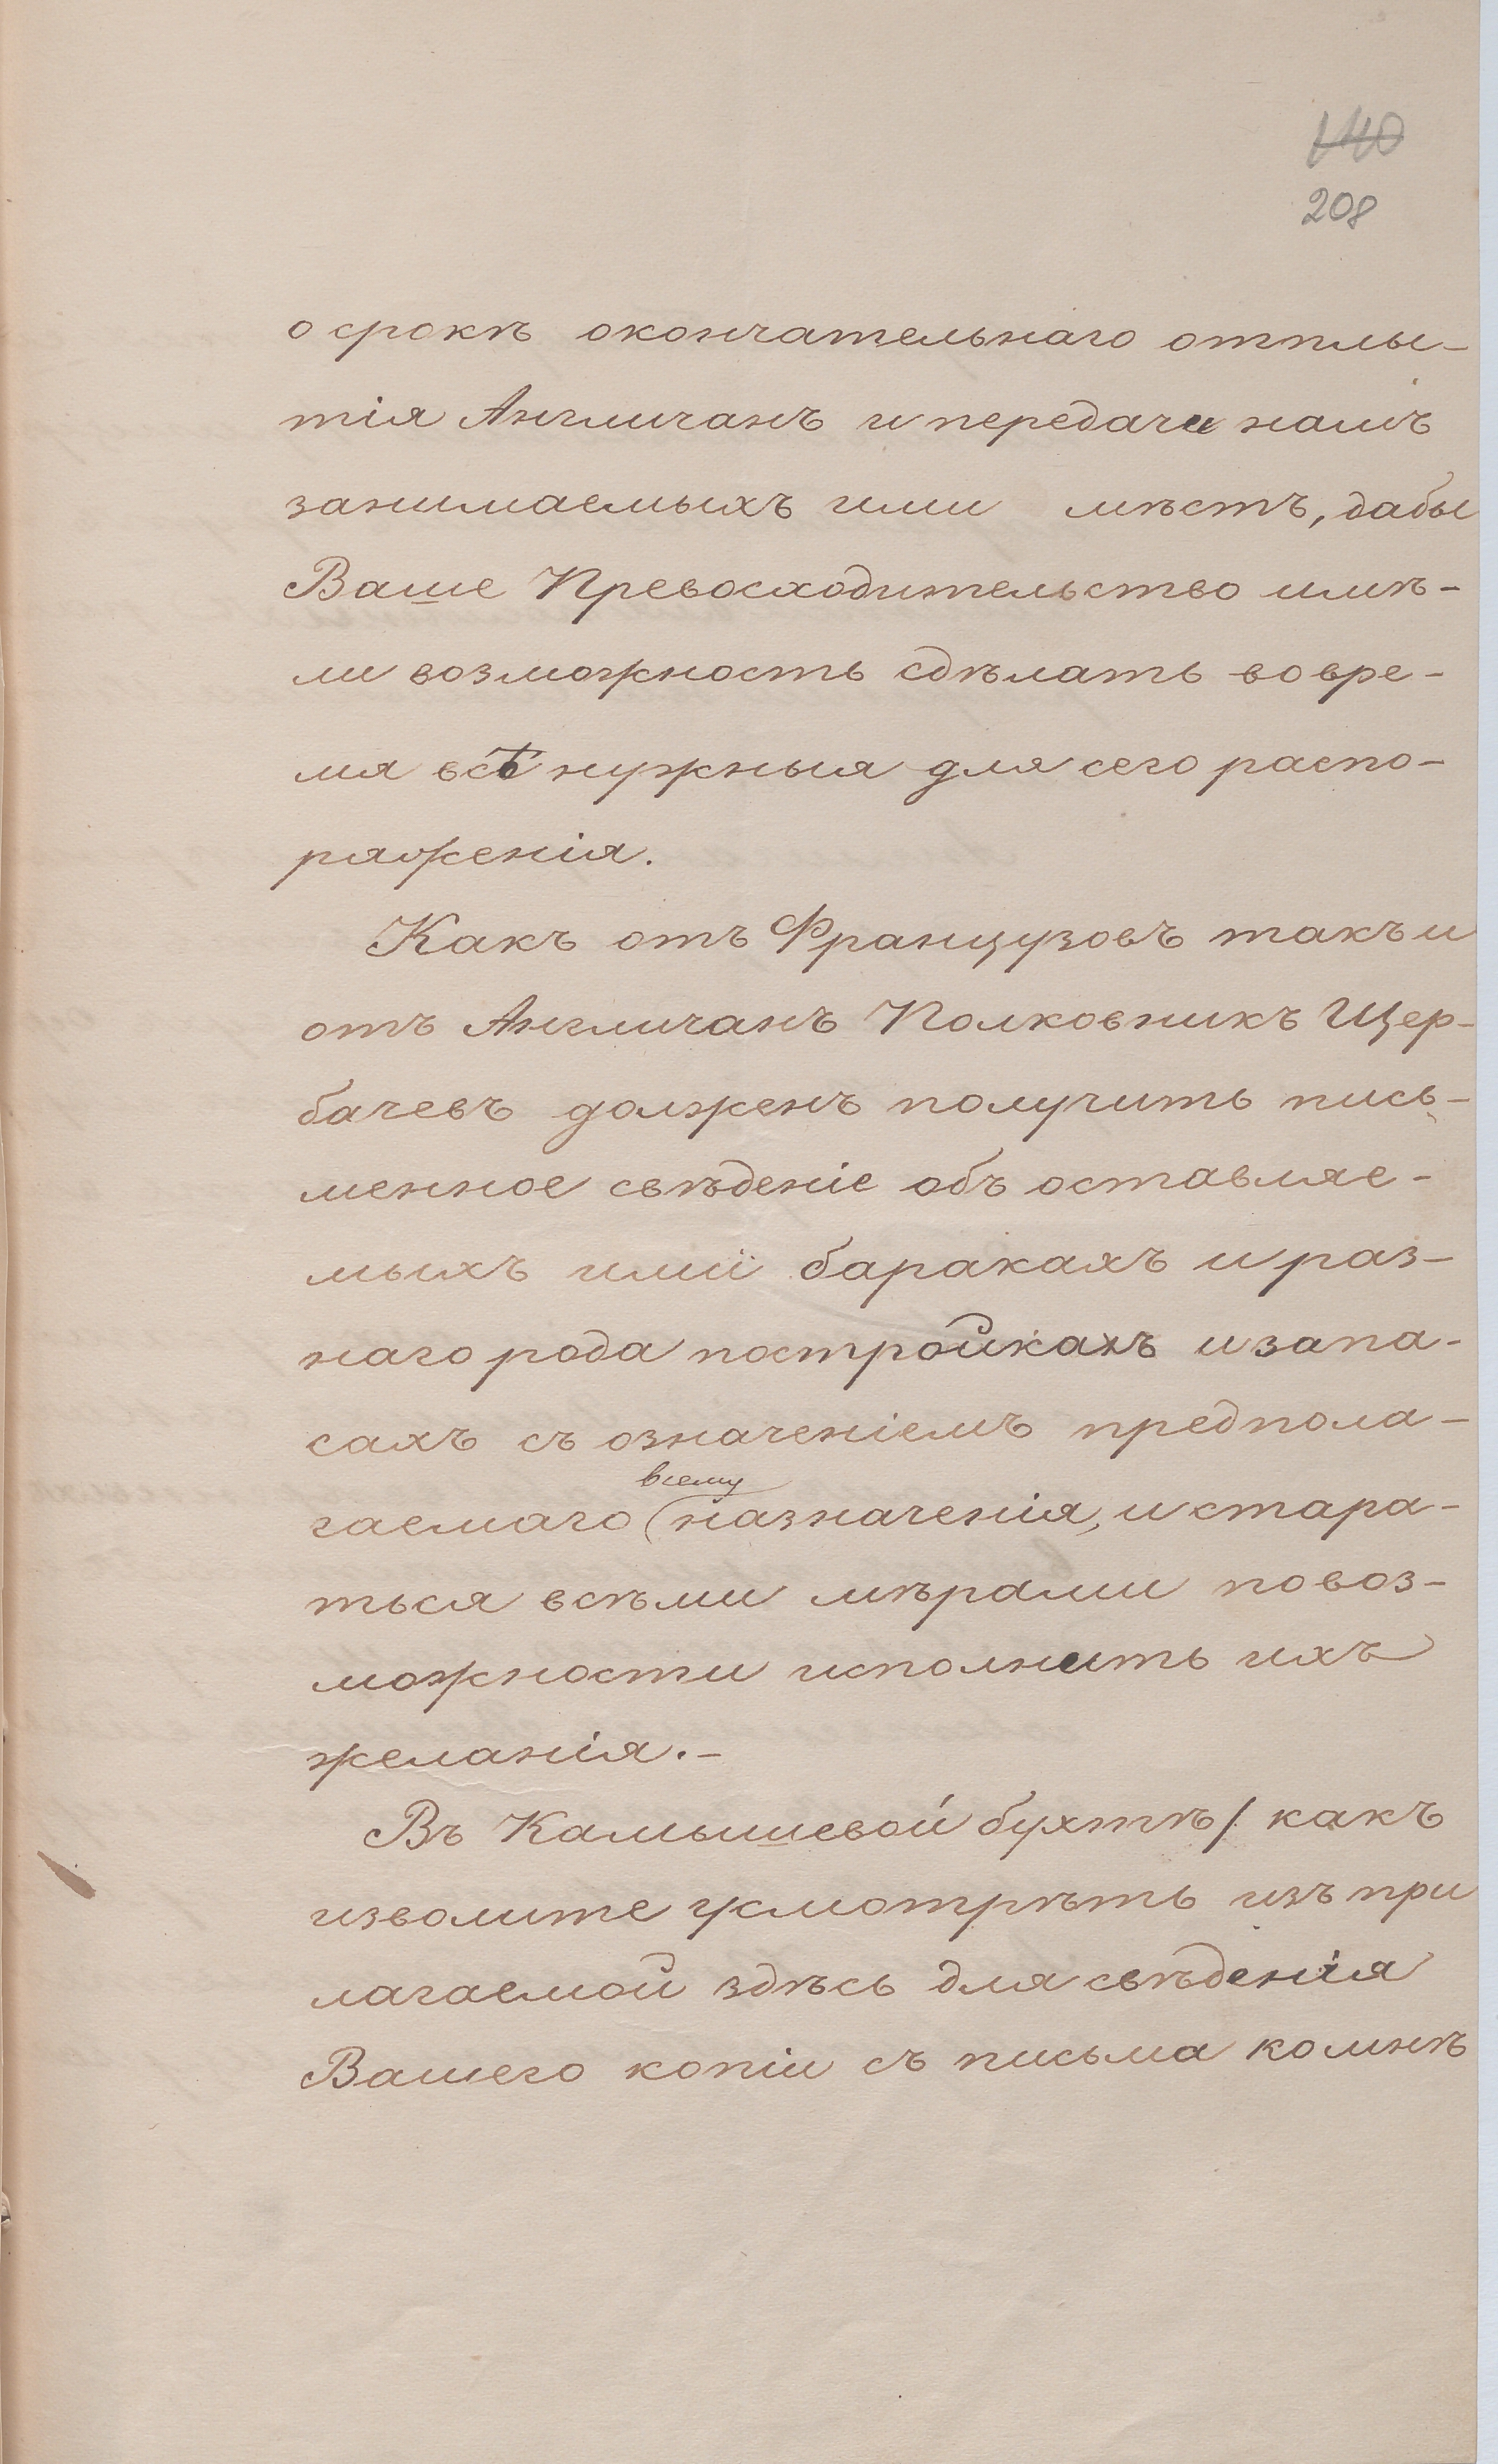 140
208
о срокѣ окончательнаго отплы-
тія Англичанъ и передачи намъ
занимаемыхъ ими мѣстъ, дабы
Ваше Превосходительство имѣ-
ли возможность сдѣлать вовре-
мя всѣ нужныя для сего распо-
ряженія.
Какъ отъ Французовъ такъ и
отъ Англичанъ Полковникъ Щер-
бачевъ долженъ получить пись-
менное свѣденіе объ оставляе-
мыхъ ими баракахъ и раз-
наго рода постройкахъ и запа-
сахъ съ означеніемъ предпола-
всему
гаемаго назначенія, и стара-
ться всѣми мѣрами по воз-
можности исполнить ихъ
желанія.-
Въ Камышевой бухтѣ /. какъ
изволите усмотрѣть изъ при
лагаемой здѣсь для свѣденія
Вашего копіи съ письма ко мнѣ